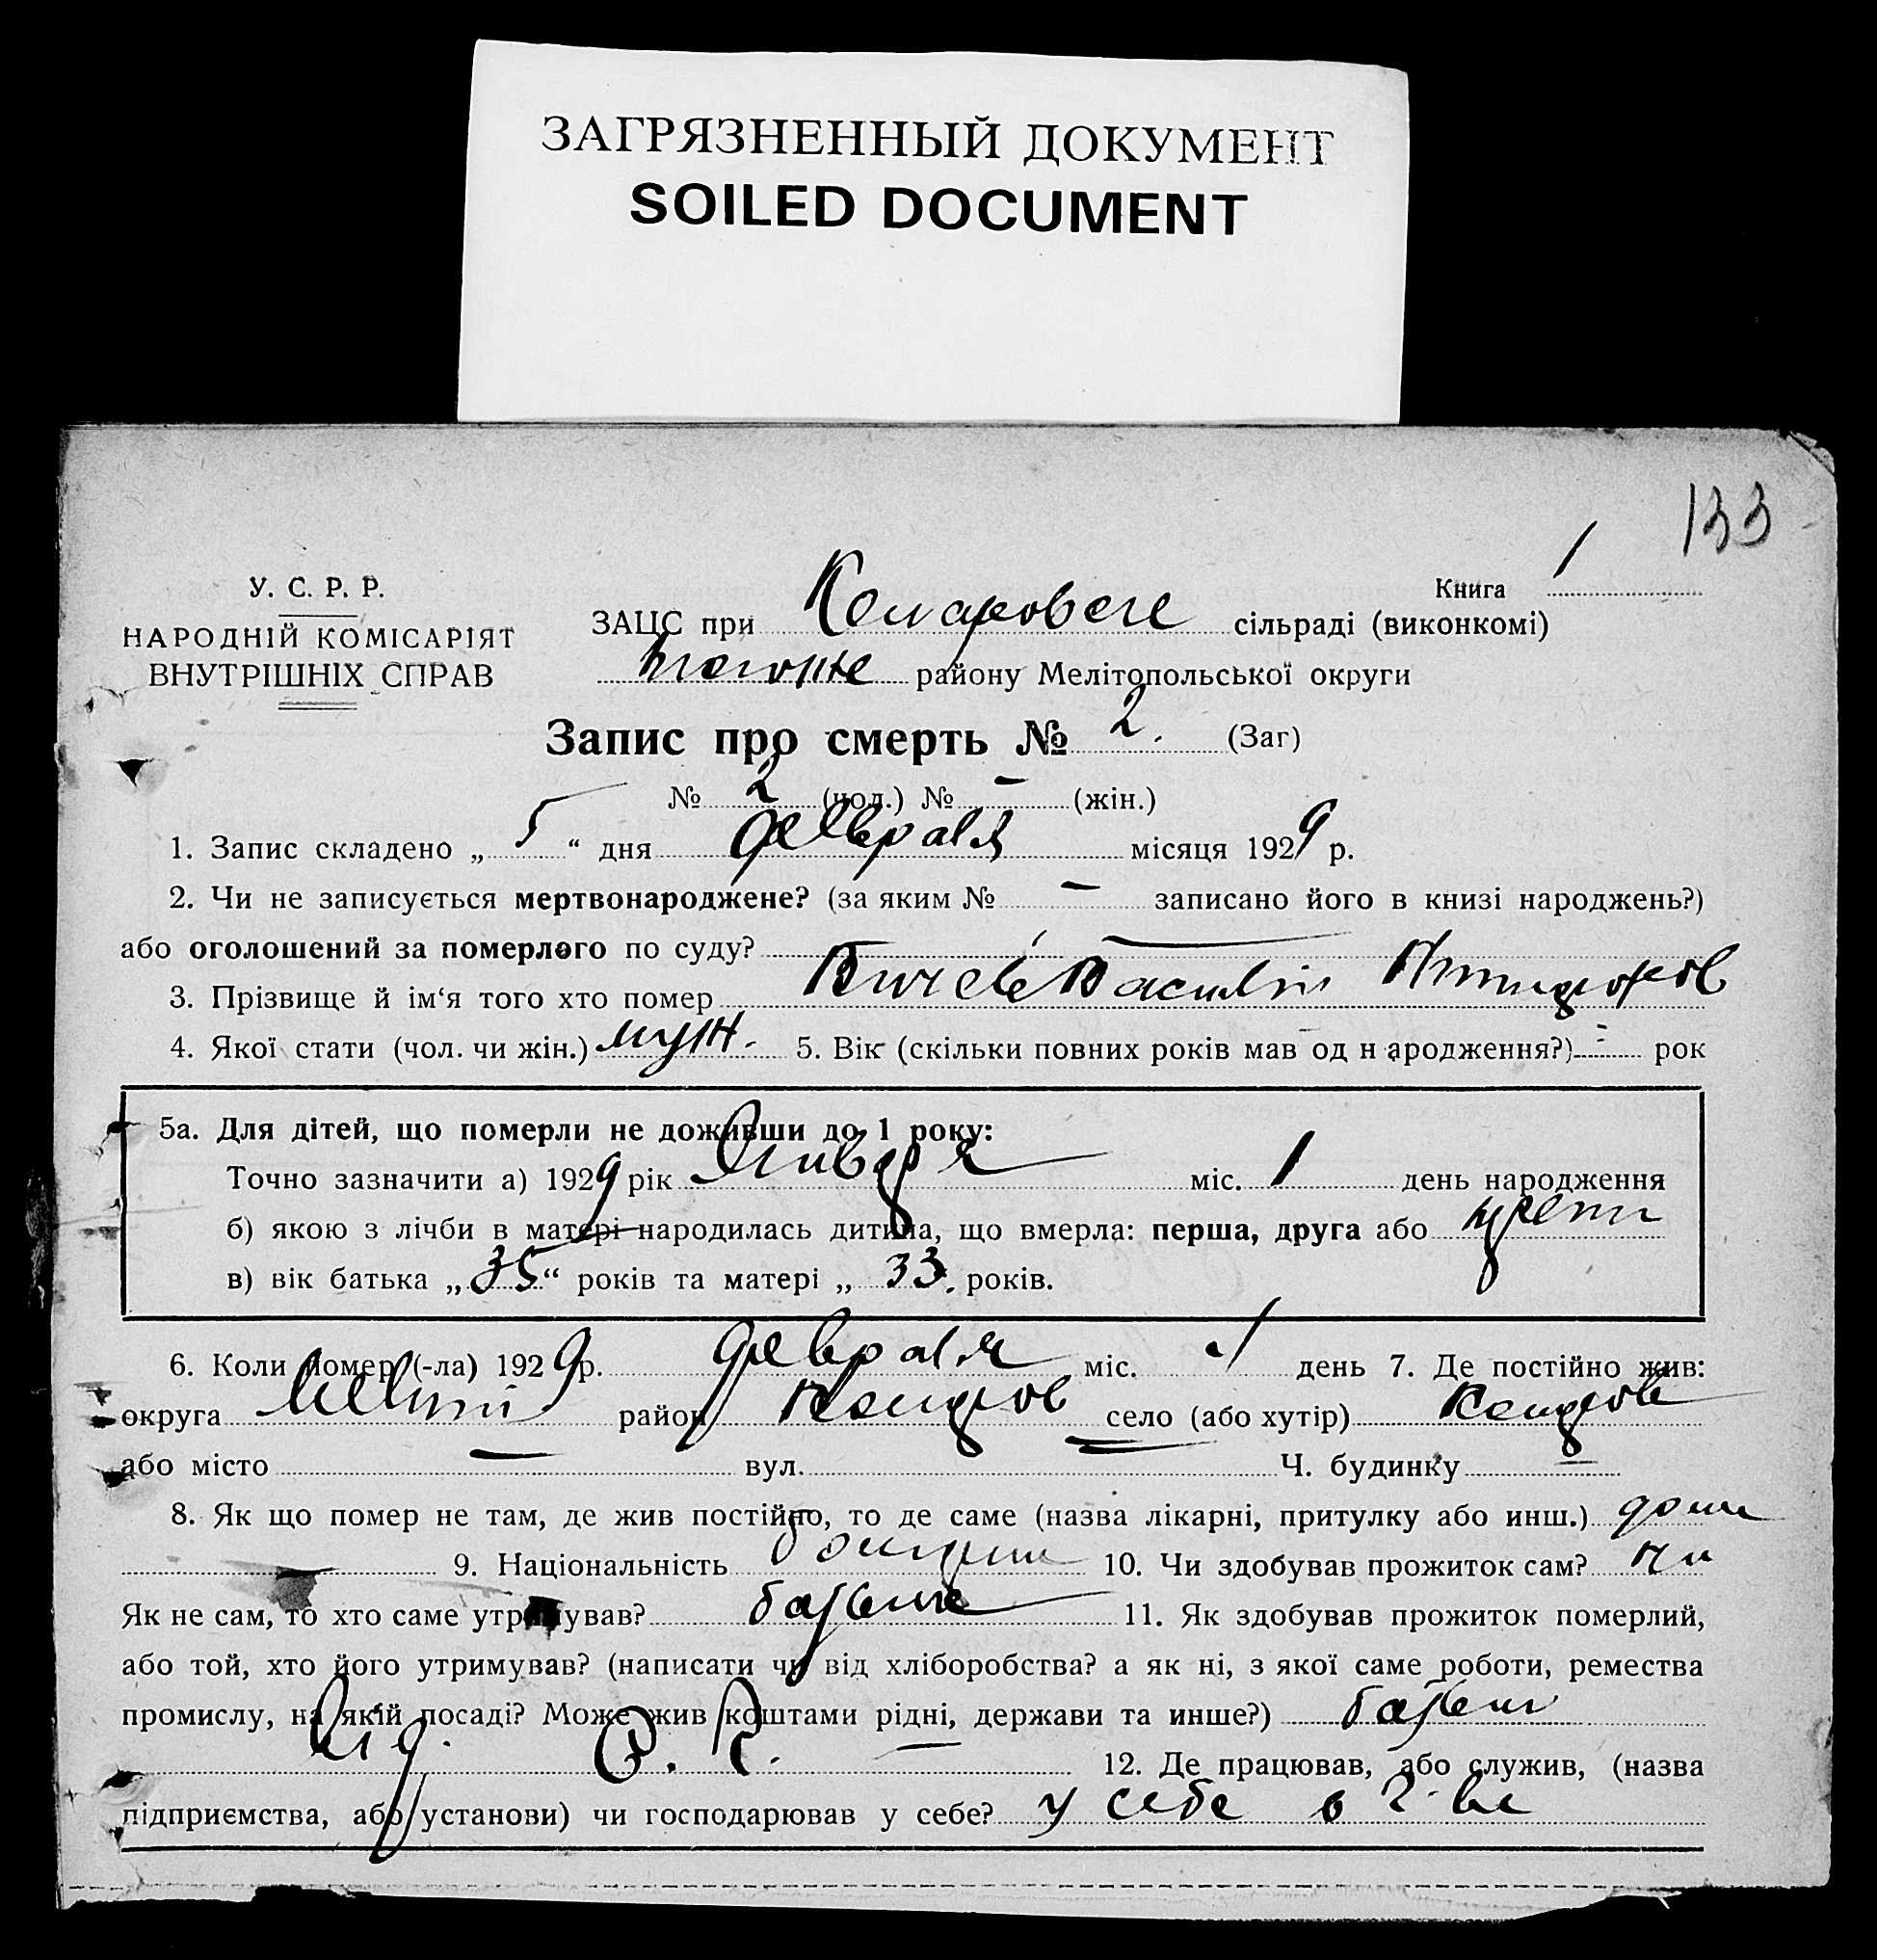 ЗАГРЯЗНЕННЫЙ ДОКУМЕНТ
SOILED DOCUMENT
133
У. С. Р. Р.
НАРОДНІЙ КОМІСАРІЯТ
ВНУТРІШНІХ СПРАВ
Книга 1
ЗАЦС при сільраді (виконкомі)
району Мелітопольської округи
Запис про смерть № 2. (Заг)
№ 2 (чол.) № – (жін.)
1. Запис складено „ 5 “ дня февраля місяця 1929 р.
2. Чи не записується мертвонароджене? (за яким № – записано його в книзі народжень?)
або оголошений за померлого по суду? —
3. Прізвище й ім‘я того хто помер Василий
4. Якої стати (чол. чи жін.) муж. 5. Вік (скільки повних років мав од н ародження?) - рок
5а. Для дітей, що померли не доживши до 1 року:
Точно зазначити а) 1929 рік Января міс. 1 день народження
б) якою з лічби в матері народилась дитина, що вмерла: перша, друга або
в) вік батька „ 35 “ років та матері „ 33. років.
6. Коли помер (-ла) 1929 р. февраля міс. 1 день 7. Де постійно жив:
округа район село (або хутір)
або місто — вул. — Ч. будинку —
8. Як що помер не там, де жив постійно, то де саме (назва лікарні, притулку або инш.) дома
— 9. Національність 10. Чи здобував прожиток сам?
Як не сам, то хто саме утримував? 11. Як здобував прожиток померлий,
або той, хто його утримував? (написати чи від хліборобства? а як ні, з якої саме роботи, ремества
промислу, на якій посаді? Може жив коштами рідні, держави та инше?)
12. Де працював, або служив, (назва
підприємства, або установи) чи господарював у себе? у себе в